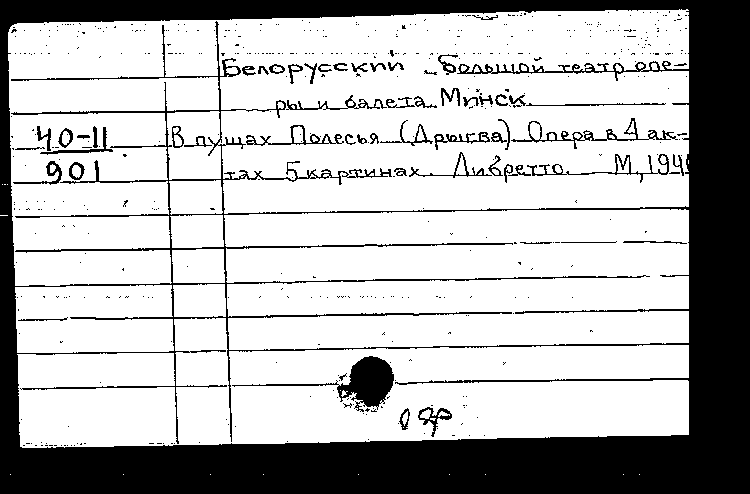 Белорусский Большой театр опе-
ры и балета. Минск.
40-11
В пущах Полесья (Дрыгва). Опера в 4 ак-
901
тах 5 картинах. Либретто. М, 194